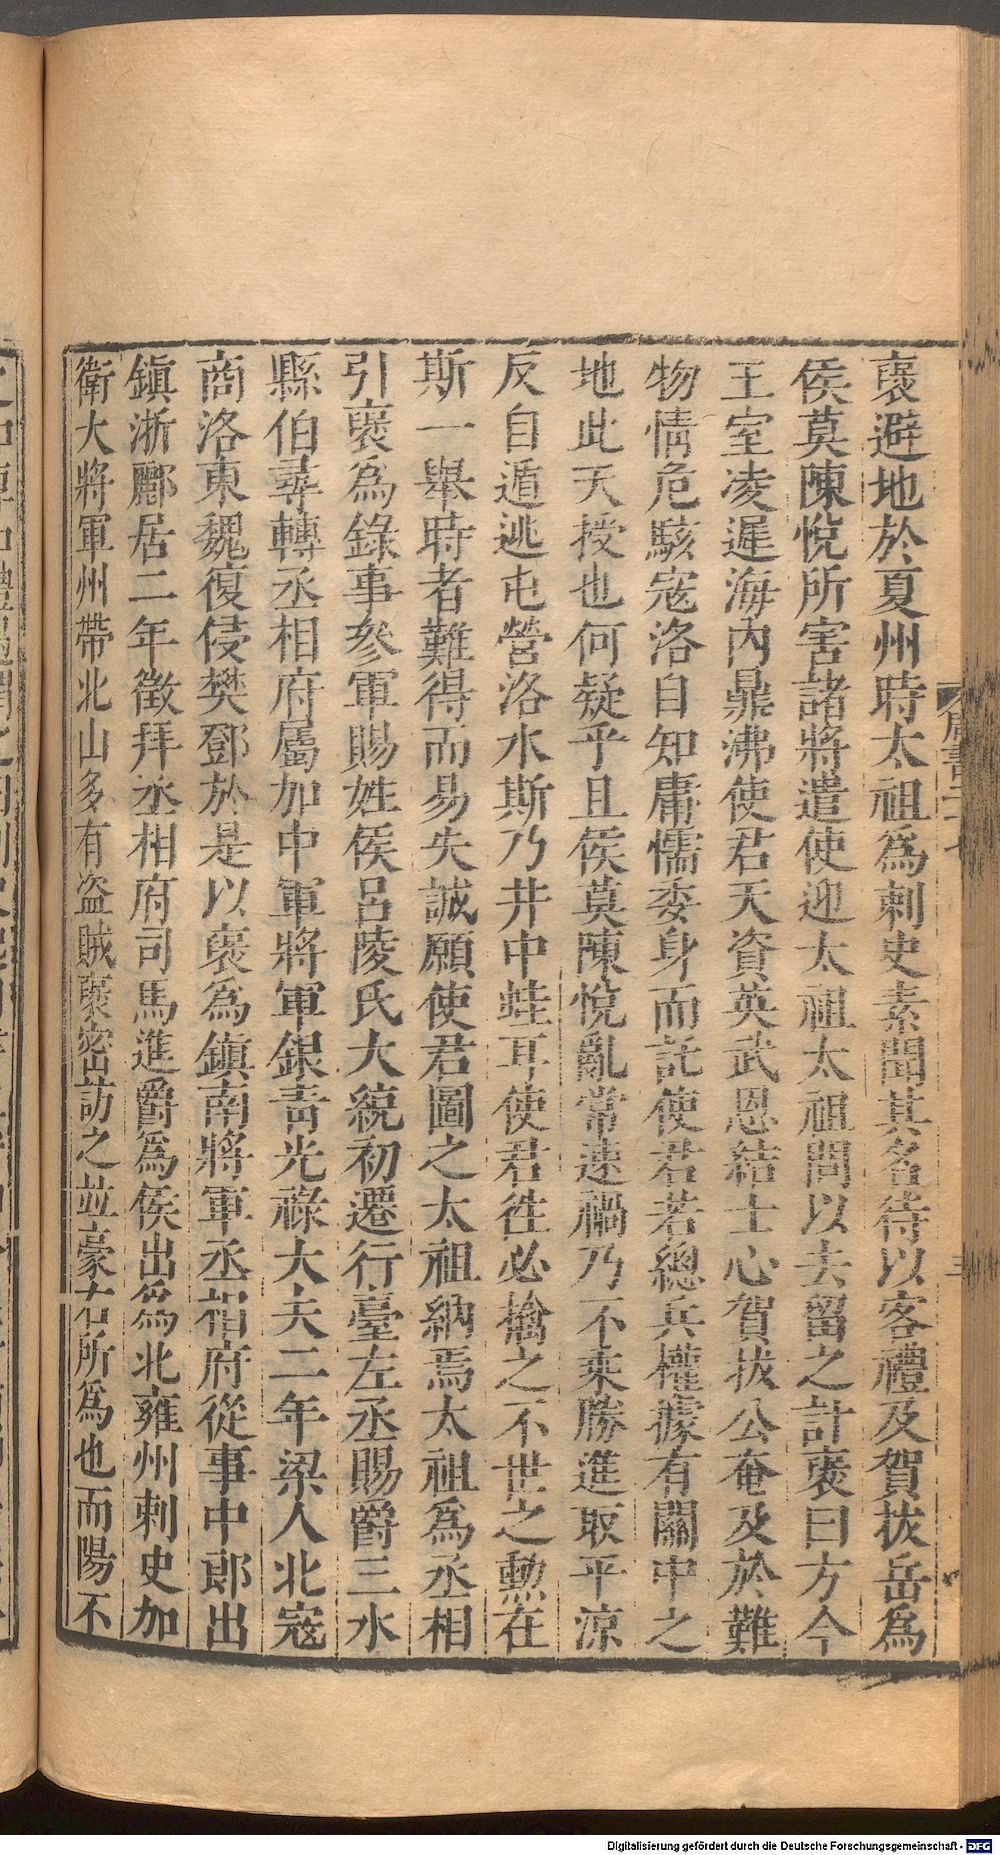 襃避地於夏州時太祖爲刺史素聞其名待以客禮及賀拔岳爲
侯莫陳悅所害諸將遣使迎太祖太祖問以去留之計襃曰方今
王室凌遲海內鼎沸使君天資英武恩結士心賀拔公奄及於難
物情危駭寇洛自知庸懦委身而託使君若總兵權據有關中之
地此天授也何疑乎且侯莫陳悅亂常速禍乃不乘勝進取平涼
反自遁逃屯營洛水斯乃井中蛙耳使君徃必擒之不世之勲在
斯一舉時者難得而易失誠願使君圖之太祖納焉太祖爲丞相
引襃爲錄事參軍賜姓侯呂陵氏大統初遷行臺左丞賜爵三水
縣伯尋轉丞相府屬加中軍將軍銀青光祿大夫二年梁人北寇
商洛東魏復侵樊鄧於是以襃爲鎮南將軍丞相府從事中郎出
鎮淅酈居二年徵拜丞相府司馬進爵爲侯出爲北雍州刺史加
衛大將軍州帶北山多有盗賊襃密訪之並豪右所爲也而陽不
Digitalisierung gefördert durch die Deutsche Forschungsgemeinschaft - DFG